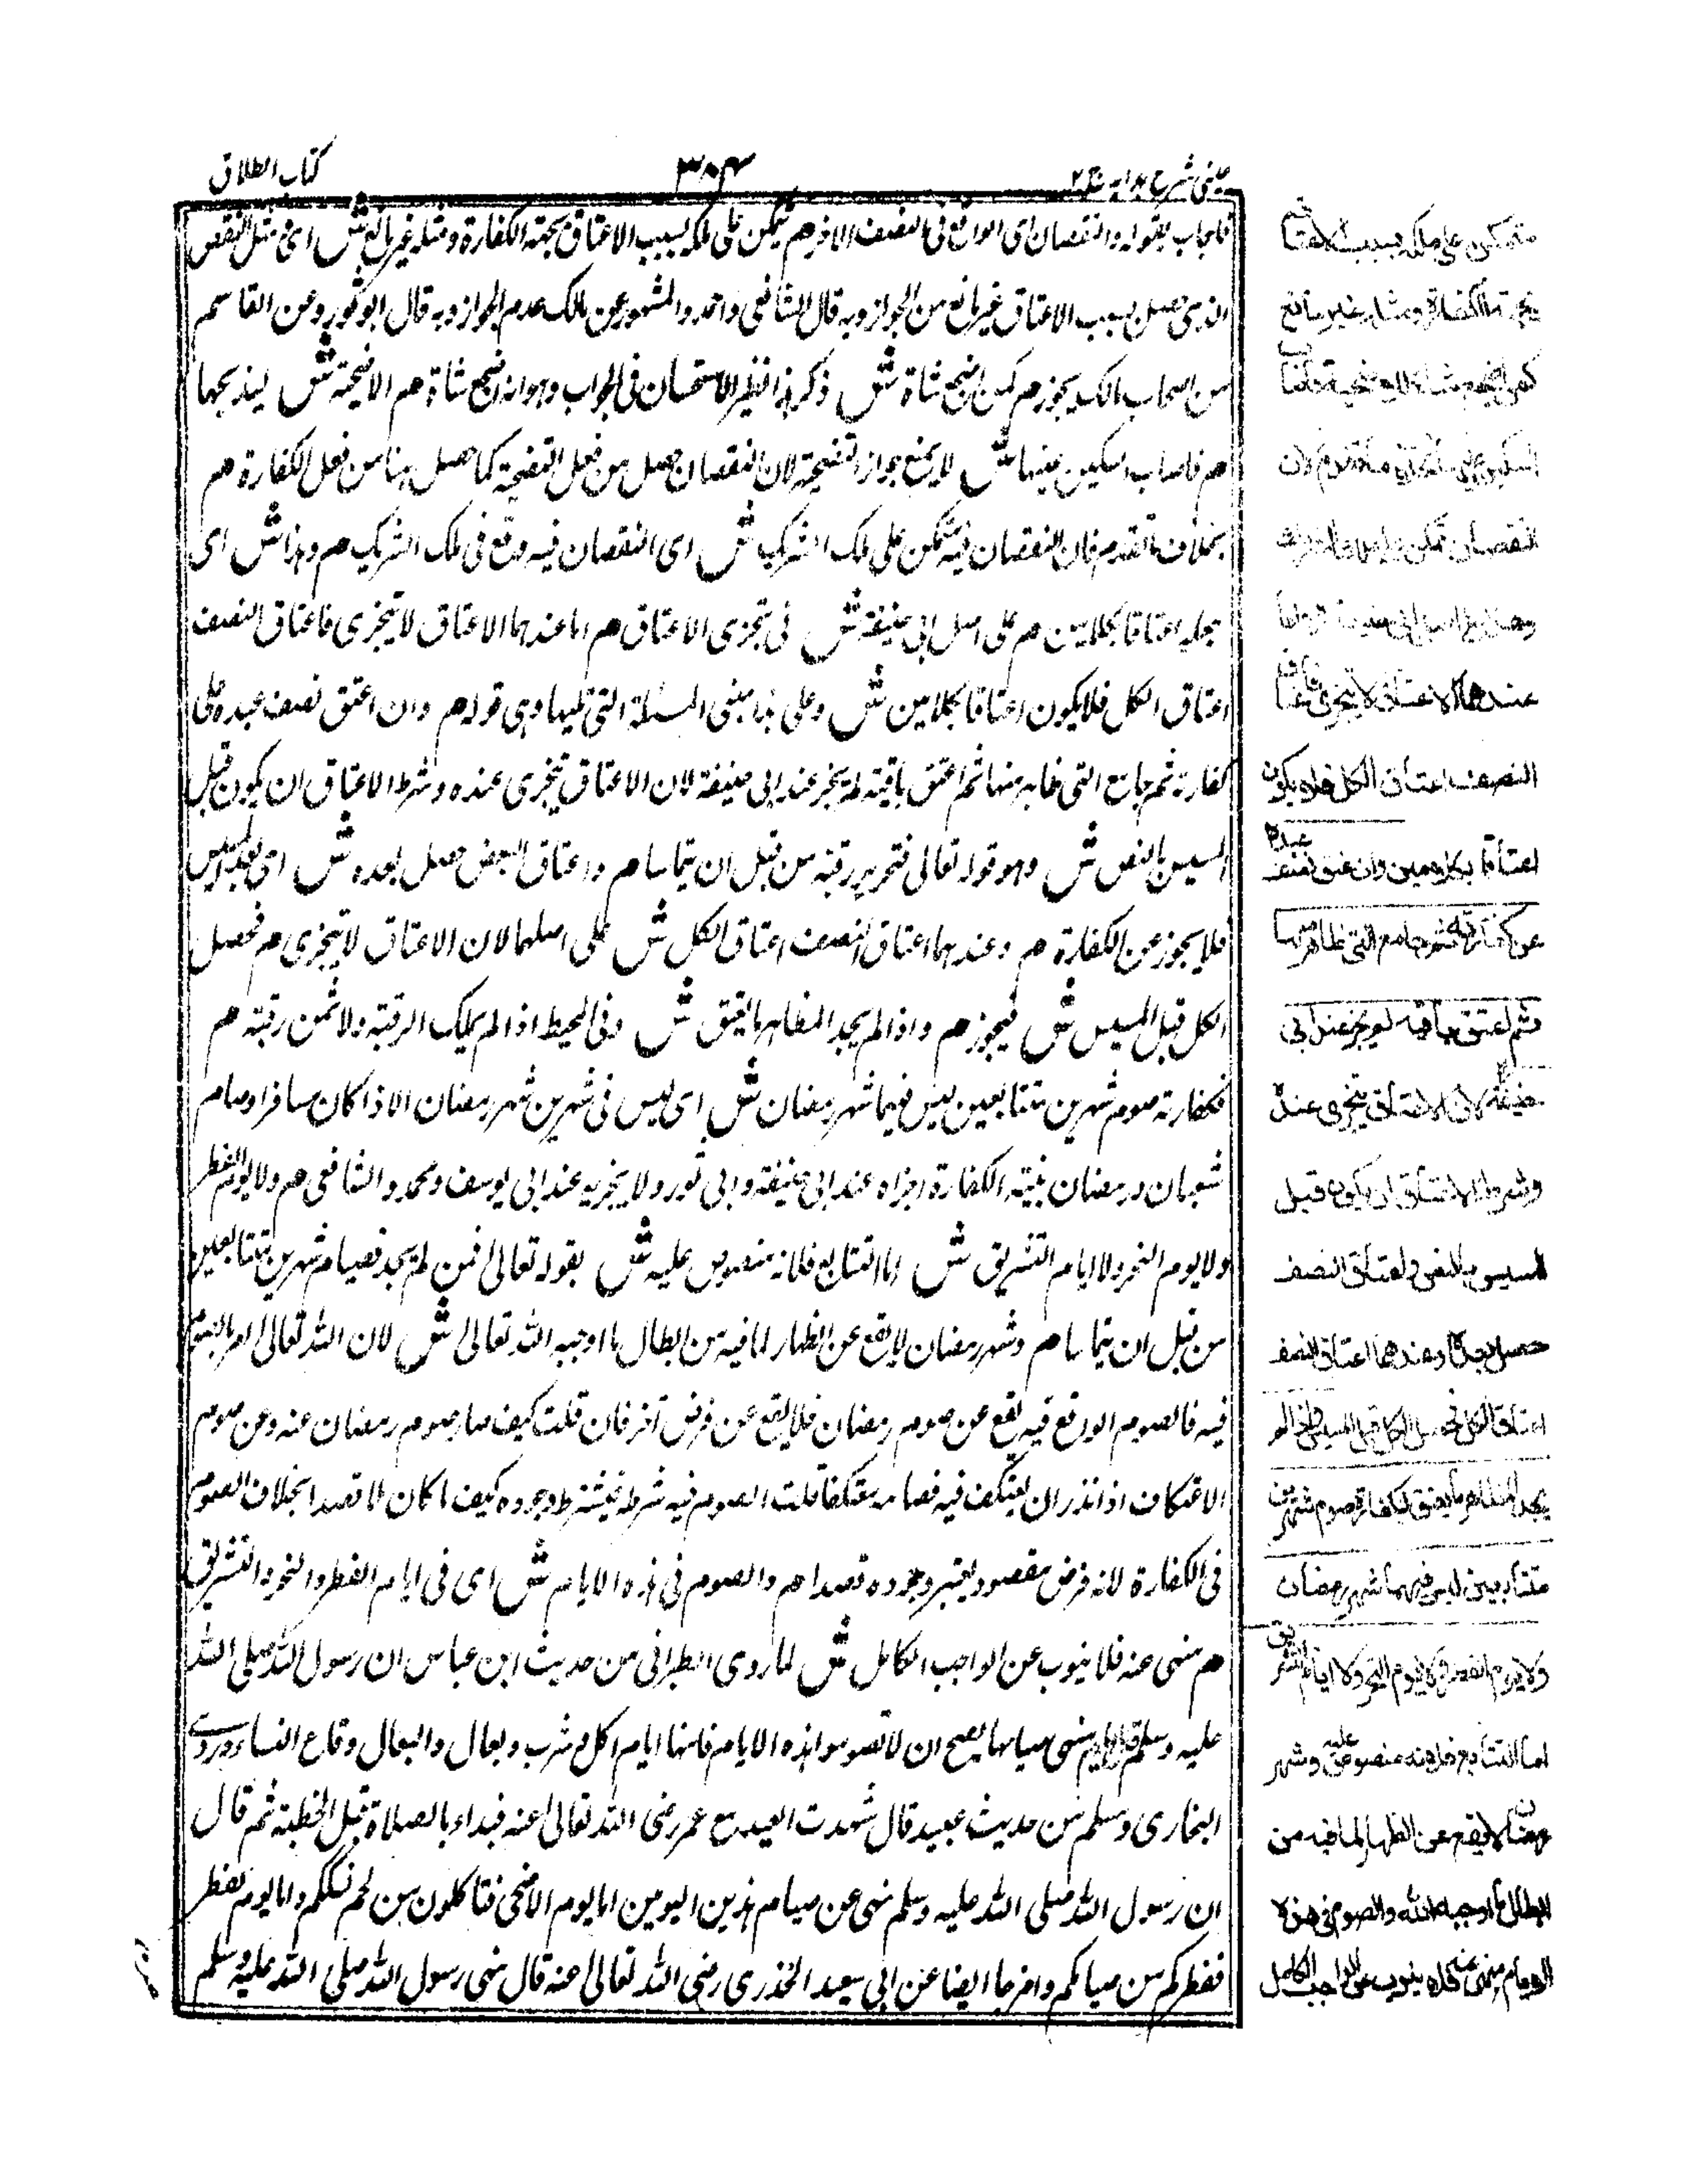 عینی شرح ہدایہ ج ۲
۳۸۴
کتاب الطلاق
فاجاب بقوله والنقصان ای الواقع فی النصف الآخر هم تمکن علی ملکه بسبب الاعتاق بجهة الکفارة ومثله غیر مانع ش ای مثل النقص
الذی حصل بسبب الاعتاق غیر مانع من الجواز وبه قال الشافعی واحمد والمشهور عن مالک عدم الجواز وبه قال ابو ثور وعن القاسم
من اصحاب مالک یجوز هم کمن اضجع شاة ش ذکر هذا نظیر الاستحسان فی الجواب وهو انه اضجع شاة هم الاضحیة ش لیذبحها
هم فاصاب السکین عینها ش لا یمنع جواز التضحیة لان النقصان حصل من فعل التضحیة کما حصل هنا من فعل الکفارة هم
بخلاف ما تقدم فان النقصان فیه تمکن علی ملک الشریک ش ای النقصان فیه وقع فی ملک الشریک هم وهذا ش ای
جعله اعتاقا بکلامین هم علی اصل ابی حنیفة ش فی تجزی الاعتاق هم اما عندهما الاعتاق لا یتجزی فاعتاق النصف
اعتاق الکل فلا یکون اعتاقا بکلامین ش وعلی هذا مبنی المسئلة التی تلیها وهی قوله هم وان اعتق نصف عبده علی
کفارته ثم جامع التی ظاهر منها ثم اعتق باقیه لم یجز عند ابی حنیفة لان الاعتاق یتجزی عنده وشرط الاعتاق ان یکون قبل
المسیس بالنص ش وهو قوله تعالی فتحریر رقبة من قبل ان یتماسا هم واعتاق البعض حصل بعده ش ای بعد المسیس
فلا یجوز عن الکفارة هم وعندهما اعتاق النصف اعتاق الکل ش علی اصلهما لان الاعتاق لا یتجزی هم فحصل
الکل قبل المسیس ش فیجوز هم واذا لم یجد المظاهر ما یعتق ش وفی المحیط اذا لم یملک الرقبة ولا ثمن رقبة هم
فکفارته صوم شهرین متتابعین لیس فیهما شهر رمضان ش ای لیس فی شهرین شهر رمضان الا اذا کان مسافرا وصام
شعبان ورمضان بنیة الکفارة اجزاه عند ابی حنیفة وابی ثور ولا یجزیه عند ابی یوسف ومحمد والشافعی هم ولا یوم الفطر
ولا یوم النحر ولا ایام التشریق ش اما التتابع فلانه منصوص علیه ش بقوله تعالی فمن لم یجد فصیام شهرین متتابعین
من قبل ان یتماسا هم وشهر رمضان لا یقع عن الظهار لما فیه من ابطال ما اوجبه الله تعالی ش لان الله تعالی امر بالصوم
فیه فالصوم الواقع فیه یقع عن صوم رمضان فلا یقع عن فرض آخر فان قلت کیف صار صوم رمضان عنه وعن صوم
الاعتکاف اذا نذر ان یعتکف فیه فصامه معتکفا قلت الصوم فیه شرط فیشترط وجوده کیف ما کان لا قصدا بخلاف الصوم
فی الکفارة لانه فرض مقصود یعتبر وجوده قصدا هم والصوم فی هذه الایام ش ای فی ایام الفطر والنحر والتشریق
هم منهی عنه فلا ینوب عن الواجب الکامل ش لما روی الطبرانی من حدیث ابن عباس ان رسول الله صلی الله
علیه وسلم منهی صیامها یصیح ان لا تصوموا هذه الایام فانها ایام اکل وشرب وبعال والبعال وقاع النساء وروی
البخاری ومسلم من حدیث عبید قال شهدت العید مع عمر رضی الله تعالی عنه فبداء بالصلاة قبل الخطبة ثم قال
ان رسول الله صلی الله علیه وسلم نهی عن صیام هذین الیومین اما یوم الاضحی فتاکلون من لحم نسککم واما یوم الفطر
ففطرکم من صیامکم واخرجا ایضا عن ابی سعید الخدری رضی الله تعالی عنه قال نهی رسول الله صلی الله علیه وسلم
متمکن علی ملکه بسبب الاعتاق
بجهة الکفارة ومثله غیر مانع
کمن اضجع شاة للاضحیة فاصاب
السکین عینها بخلاف ما تقدم لان
النقصان تمکن علی ملک الشریک
وهذا علی اصل ابی حنیفة اما
عندهما الاعتاق لا یتجزی فاعتاق
النصف اعتاق الکل فلا یکون
اعتاقا بکلامین وان اعتق نصف عبده
عن کفارته ثم جامع التی ظاهر منها
ثم اعتق باقیه لم یجز عند ابی
حنیفة لان الاعتاق یتجزی عنده
وشرط الاعتاق ان یکون قبل
المسیس بالنص واعتاق النصف
حصل بعده وعندهما اعتاق النصف
اعتاق الکل فحصل الکل قبل المسیس واذا لم
یجد المظاهر ما یعتق فکفارته صوم شهرین
متتابعین لیس فیهما شهر رمضان
ولا یوم الفطر ولا یوم النحر ولا ایام التشریق
اما التتابع فلانه منصوص علیه وشهر
رمضان لا یقع عن الظهار لما فیه من
ابطال ما اوجبه الله والصوم فی هذه
الایام منهی عنه فلا ینوب عن الواجب الکامل